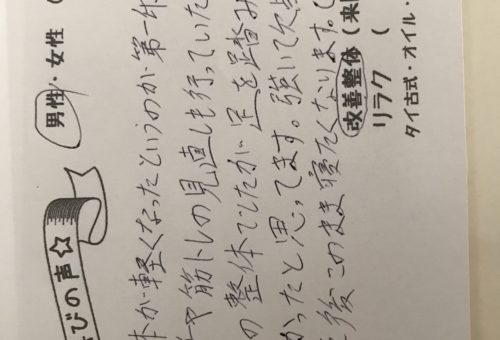 びの声☆
男性・女性（
体が軽くなったというのが第一
や筋トレの見直しも行っていた
の整体でしたが足を踏み
かったと思ってます。強いて欠
後このまま寝たくなります。
改善整体（来
リラク（
タイ古式・オイル・